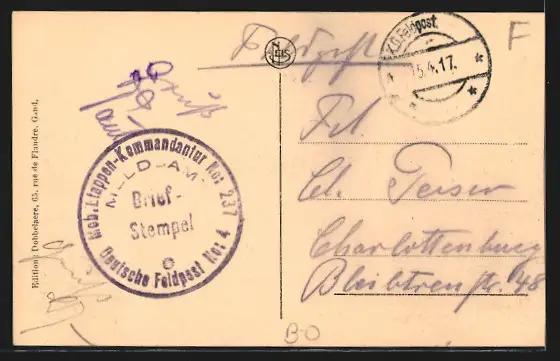 Feldpost
K.D. Feldpost.
15.4.17.
F
Gruß
Mob. Etappen-Kommandantur No: 237
MELD-AMT
Brief-
Stempel
Deutsche Feldpost No: 4
Edition: Dobbelaere, 65, rue de Flandre, Gand.
Frl.
Charlottenburg
Bleibtreustr. 48
B-O